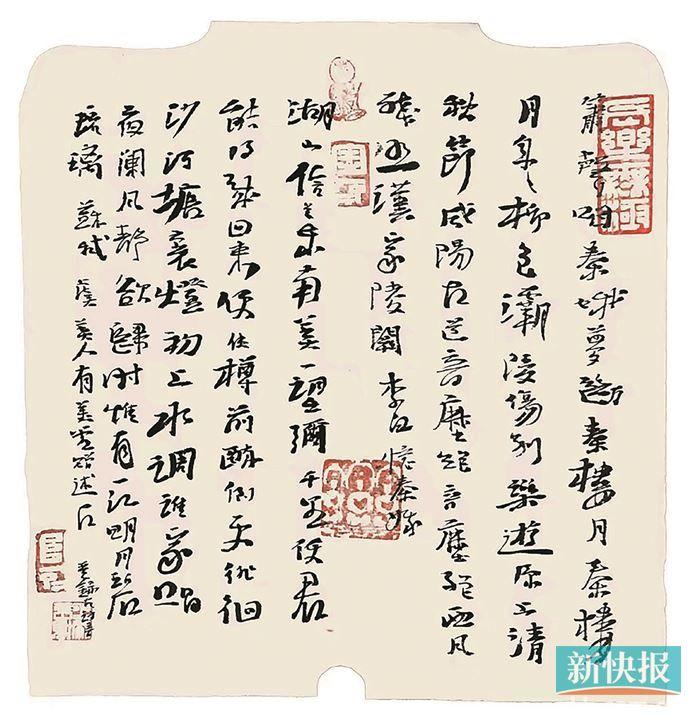 簫聲咽秦娥夢斷秦樓月秦樓
月年々柳色灞陵傷別樂遊原上清
秋節咸陽古道音塵絕音塵絕西風
殘照漢家陵闕李白憶秦娥
湖山信是東南美一望彌千里使君
能得幾回來便使樽前醉倒更徘徊
沙河塘裏燈初上水調誰家唱
夜闌風靜欲歸時惟有一江明月碧
琉璃蘇軾虞美人有美堂贈述古
長樂無極
新快报